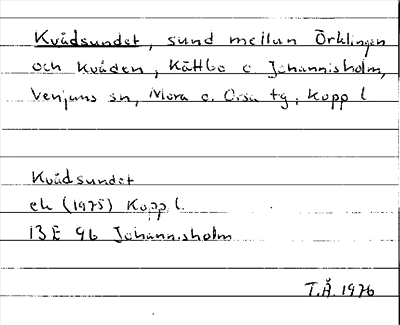 Kvådsundet, sund mellan Örklingen
och Kvåden, Kättbo o. Johannisholm,
Venjans sn, Mora o. Orsa tg, Kopp l
Kvådsundet
ek (1975) Kopp l.
13E 9b Johannisholm
T.Å. 1976